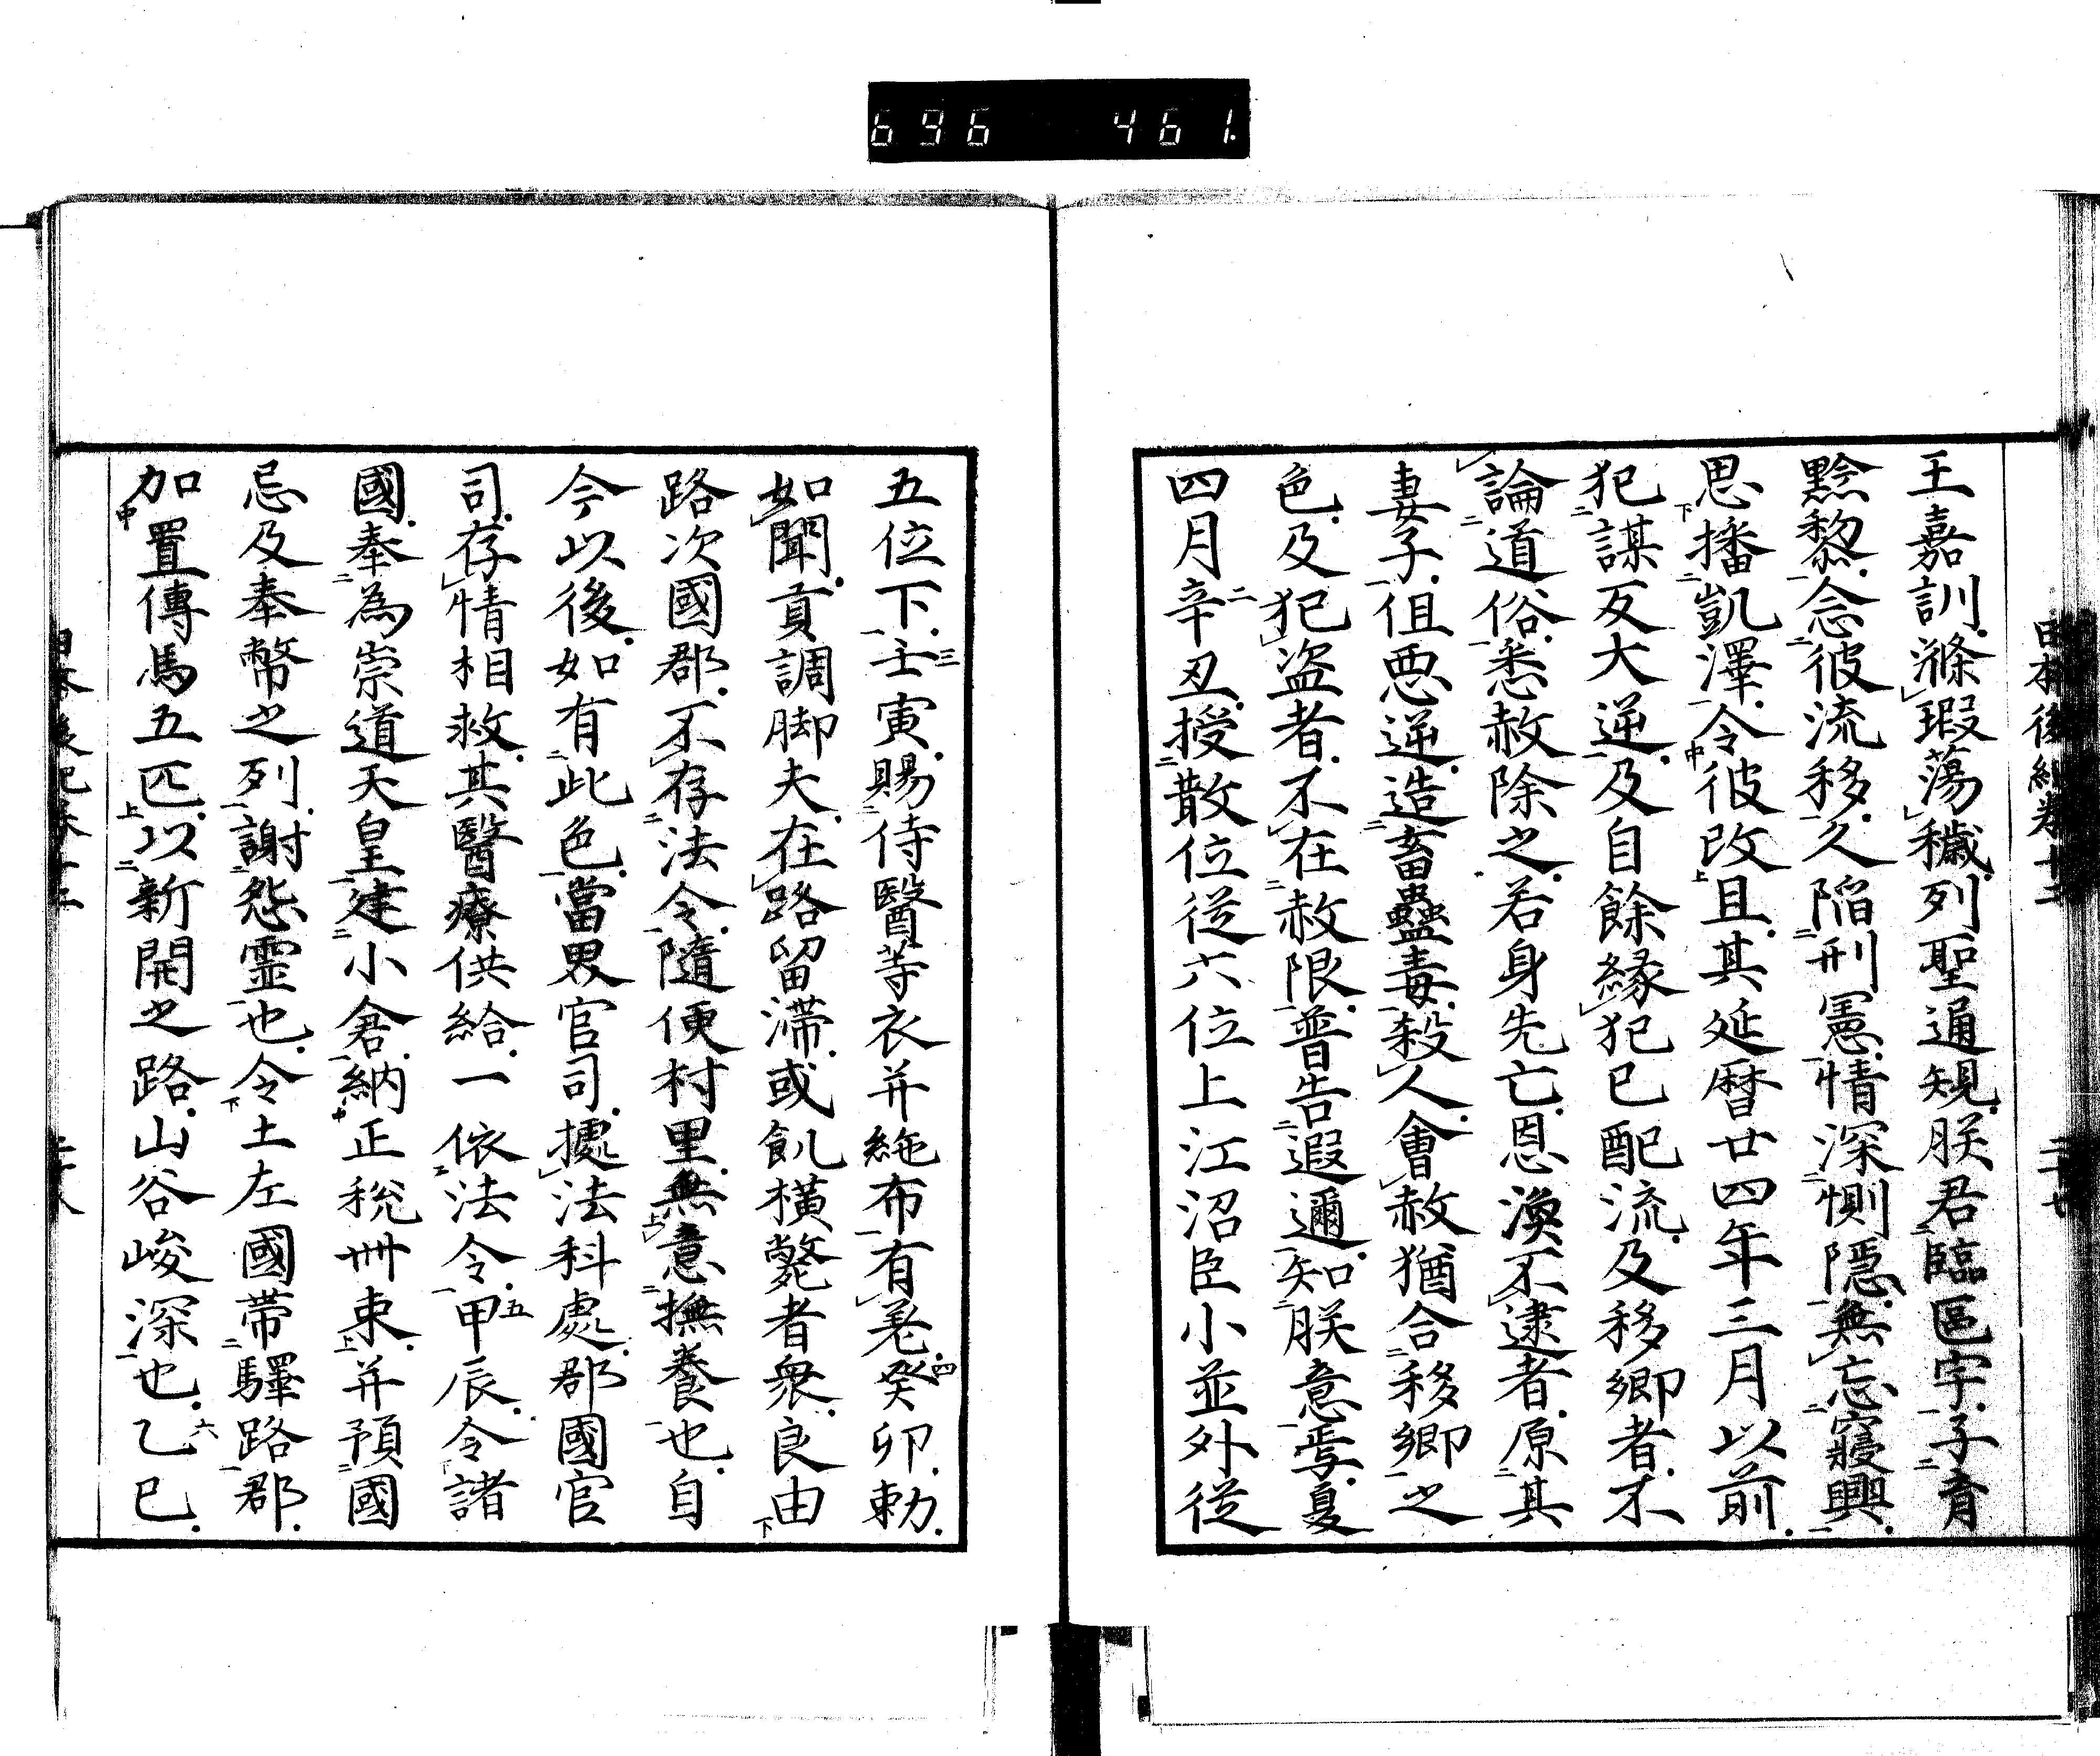 696 461
日本後紀卷十二
王嘉訓滌瑕蕩穢列聖通規朕君臨區宇子育
黔黎念彼流移久陷刑憲情深惻隱無忘寢興
思播凱澤令彼改且其延曆廿四年三月以前
犯謀反大逆及自餘緣犯已配流及移鄉者不
論道俗悉赦除之若身先亡恩渙不逮者原其
妻子但惡逆造畜蠱毒殺人會赦猶合移鄉之
色及犯盜者不在赦限普告遐邇知朕意焉夏
四月辛丑授散位從六位上江沼臣小並外從
五位下壬寅賜侍醫等衣并絁布有差癸卯勅
如聞貢調脚夫在路留滯或飢橫斃者衆良由
路次國郡不存法令隨便村里無意撫養也自
今以後如有此色當界官司據法科處郡國官
司存情相救其醫療供給一依法令甲辰令諸
國奉為崇道天皇建小倉納正税卌束并預國
忌及奉幣之列謝怨霊也令土左國帶驛路郡
加置傳馬五匹以新開之路山谷峻深也乙巳